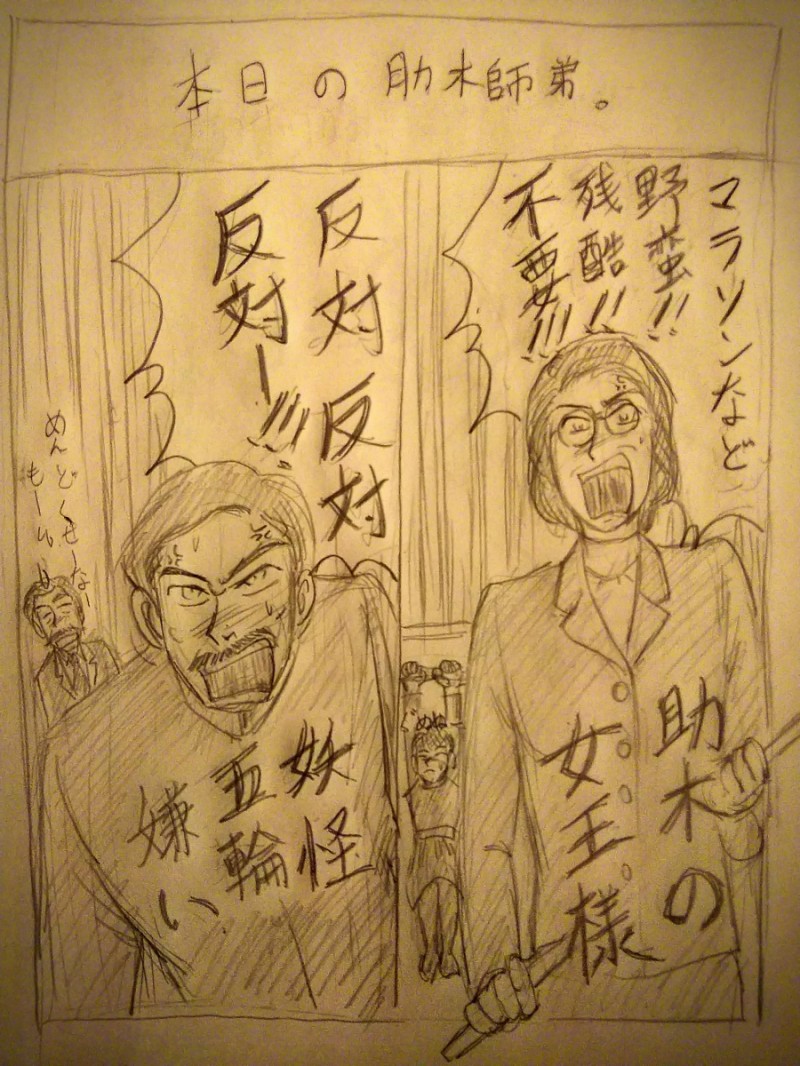 本日の助木師弟。
マラソンなど
野蛮!!
残酷!!
不要!!!
助木の
女王様
反対反対
反対ー!!!
妖怪
五輪
嫌い
めんどくせーなー